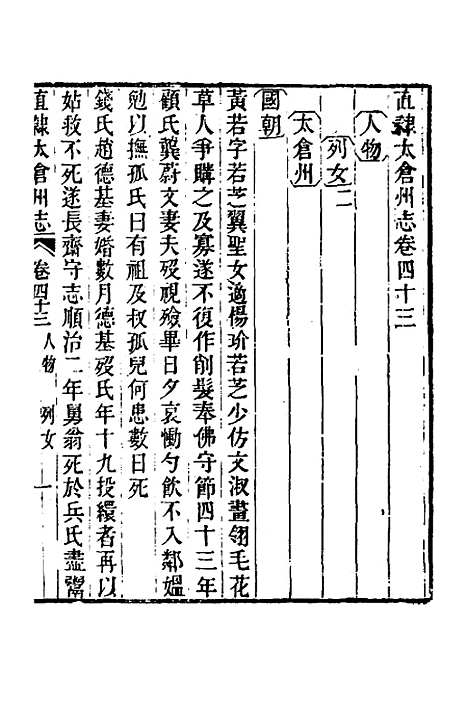 直隸太倉州志卷四十三
人物
列女二
太倉州
國朝
黃若字若芝翼聖女適楊玠若芝少仿文淑畫翎毛花
草人爭購之及寡遂不復作削髮奉佛守節四十三年
顧氏龔蔚文妻夫歿視殮畢日夕哀慟勺飲不入鄰媼
勉以撫孤氏曰有祖及叔孤兒何患數日死
錢氏趙德基妻婚數月德基歿氏年十九投繯者再以
姑救不死遂長齋守志順治二年舅翁死於兵氏盡鬻
直隸太倉州志 卷四十三 人物 列女 一